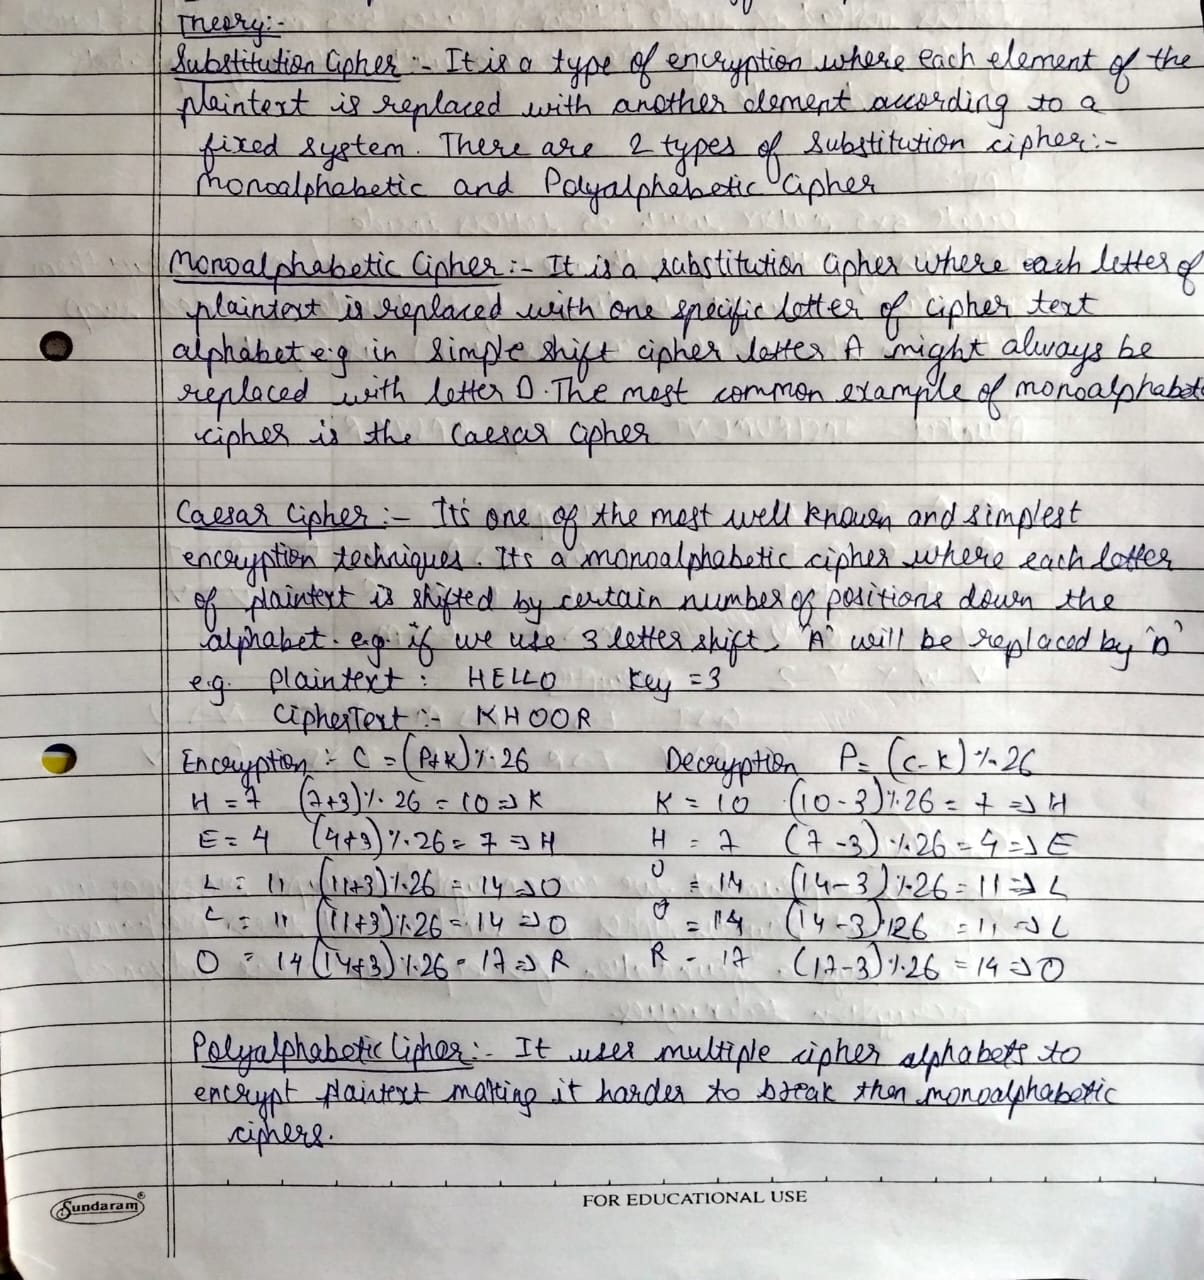 Theory:-
Substitution Cipher :- It is a type of encryption where each element of the
plaintext is replaced with another element according to a
fixed system. There are 2 types of Substitution cipher:-
Monoalphabetic and Polyalphabetic Cipher
Monoalphabetic Cipher :- It is a substitution cipher where each letter of
plaintext is replaced with one specific letter of cipher text
alphabet e.g in simple shift cipher letter A might always be
replaced with letter D. The most common example of monoalphabet
cipher is the Caesar Cipher
Caesar Cipher :- It's one of the most well known and simplest
encryption techniques. Its a monoalphabetic cipher where each letter
of plaintext is shifted by certain number of positions down the
alphabet. e.g. if we use 3 letter shift, "A" will be replaced by "D"
e.g. Plaintext : HELLO Key = 3
CipherText :- KHOOR
Encryption :- C = (P+K) % 26 Decryption P = (C-K) % 26
H = 7 (7+3) % 26 = 10 => K K = 10 (10-3) % 26 = 7 => H
E = 4 (4+3) % 26 = 7 => H H = 7 (7-3) % 26 = 4 => E
L = 11 (11+3) % 26 = 14 => O O = 14 (14-3) % 26 = 11 => L
L = 11 (11+3) % 26 = 14 => O O = 14 (14-3) % 26 = 11 => L
O = 14 (14+3) % 26 = 17 => R R = 17 (17-3) % 26 = 14 => O
Polyalphabetic Cipher :- It uses multiple cipher alphabets to
encrypt plaintext making it harder to break then monoalphabetic
ciphers.
Sundaram®
FOR EDUCATIONAL USE